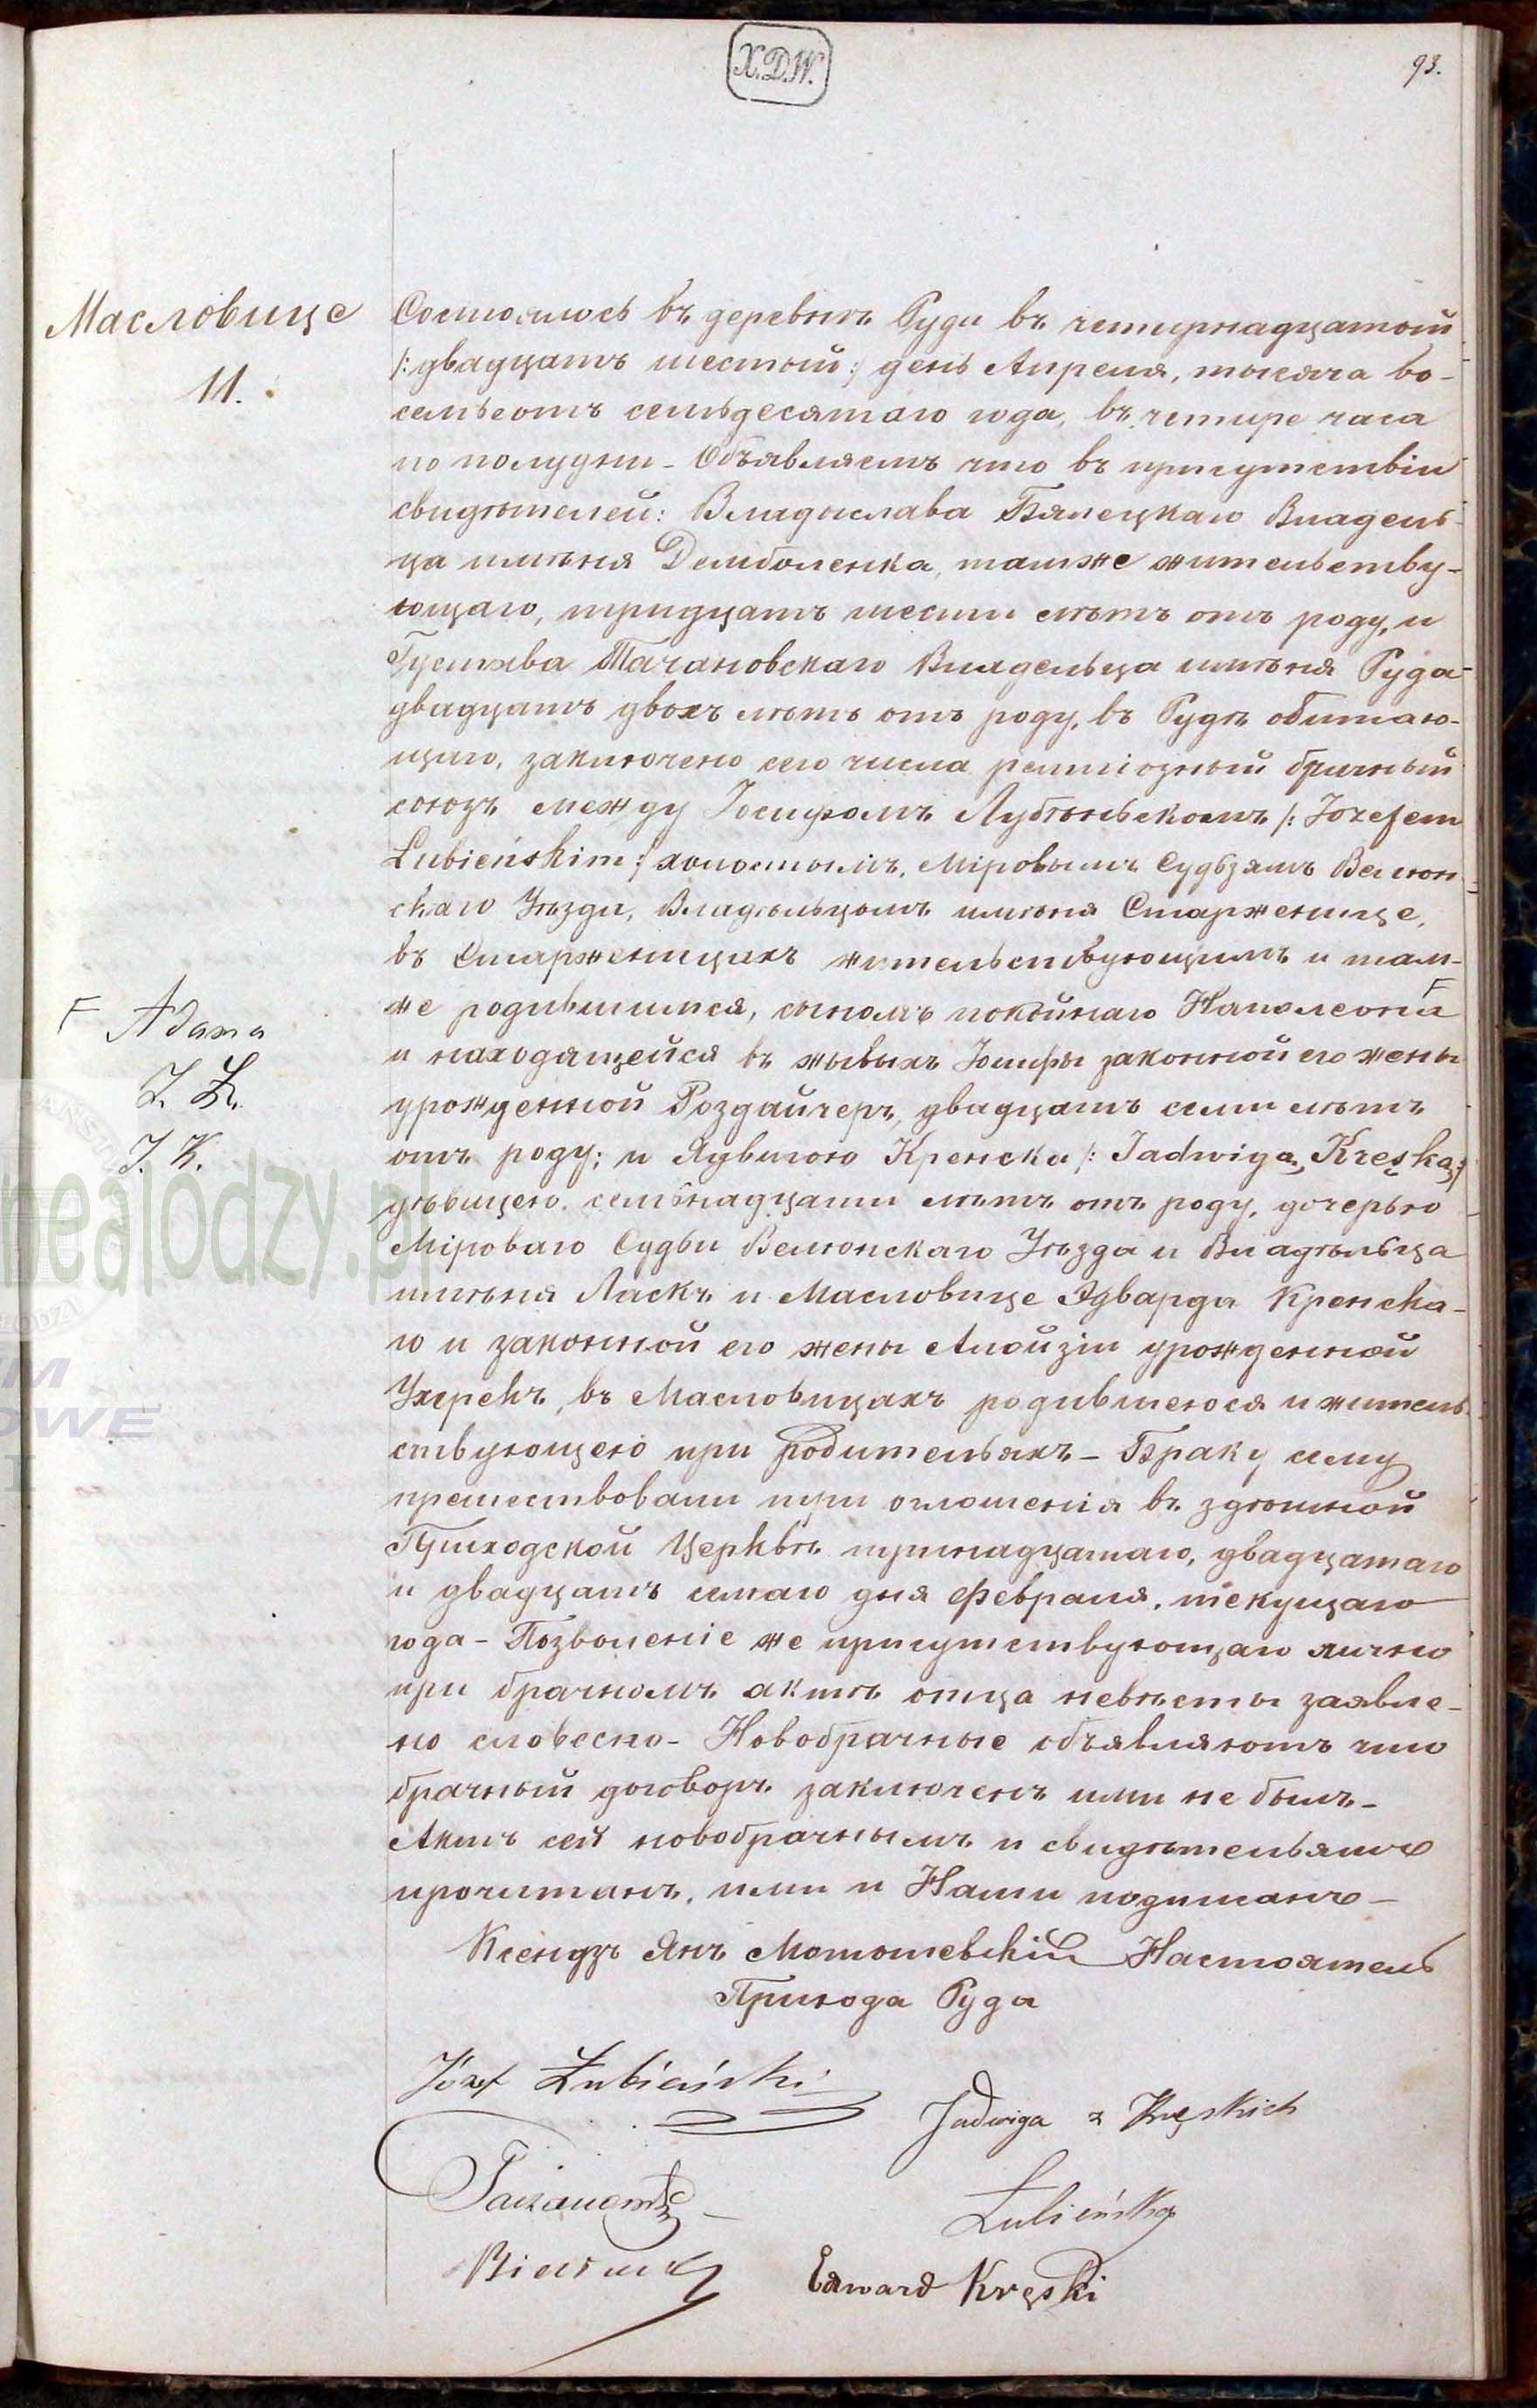 X.D.W.
93.
Масловице
11.
Состоялось въ деревнѣ Руди въ четирнадцатой
/: двадцать шестой :/ день Апреля, тысяча во-
семьсотъ семьдесятаго года, въ четире часа
по полудни – Объявляемъ что въ присутствіи
свидѣтелей: Владыслава Бялецкаго Владель-
ца имѣня Демболенка, тамже жительетву-
ющаго, тридцать шести лѣтъ отъ роду, и
Густава Тачановскаго Владельца имѣня Руда
двадцать двохъ лѣтъ отъ роду, въ Рудѣ обитаю-
щаго, заключено сего числа религіозный брачный
союзъ между Іосифомъ Лубѣньскомъ /: Jozefem
Łubieńskim :/ холостымъ, Міровымъ Судьзямъ Велюн
скаго Уѣзда, Владѣльцомъ имѣня Старженице,
въ Старженицахъ жительствующимъ и там-
же родившимся, сыномъ покойнаго Наполеона F
F Adama
J. Ł.
J. K.
и находящейся въ жывыхъ Юзифы законной его жены
урожденной Роздайчеръ, двадцать семи лѣтъ
отъ роду; и Ядвигою Кренска /: Jadwigą Kręską :/
дѣвицею, семьнадцати лѣтъ отъ роду, дочерью
Міроваго Судьи Велюнскаго Уѣзда и Владѣльца
имѣня Ласкъ и Масловице Эдварда Кренска-
го и законной его жены Алойзіи урожденной
въ Масловицахъ родившеюся и житель
ствующею при родительяхъ – Браку сему
предшествовали три оглошенія въ здѣшной
Приходской Церквѣ тринадцатаго, двадцатаго
и двадцать семаго дня Февраля, текущаго
года – Позволеніе же присутствующаго лично
при брачномъ актѣ отца невѣсты заявле-
но словесно – Новобрачные объявляютъ что
брачный договоръ заключенъ ими не былъ –
Актъ сей новобрачнымъ и свидѣтельямъ
прочитанъ, ими и Нами подписанъ –
Ксендзъ Янъ Мотошевскій Настоятель
Прихода Руда
Józef Łubieński
Jadwiga z Kręskich
Taczanowski
Łubieńska
Edward Kręski
nealodzy.pl